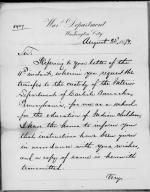 War Department
Washington City
August 23, 1879.
Sir
Referring to your letter of the
instant, wherein you request the
transfer to the custody of the Interior
Department of Carlisle Barracks,
Pennsylvania, for use as a school
for the education of Indian children,
I have the honor to inform you
that instructions have been given
in accordance with your wishes,
and a copy of same is herewith
transmitted.
Very